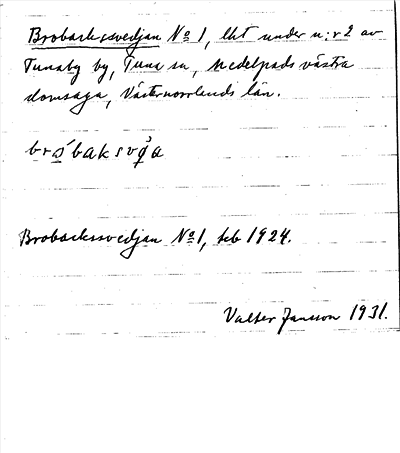 Brobackssvedjan No 1, lht under n:r 2 av
Tunaby by, Tuna sn, Medelpads västra
domsaga, Västernorrlands län.
Brobackssvedjan No 1, jeb 1924.
Valter Jansson 1931.